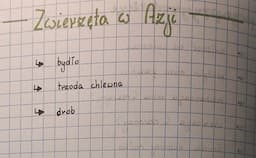 Zwierzęta w Azji
↳ bydło
↳ trzoda chlewna
↳ drób